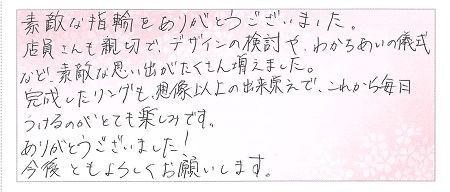 素敵な指輪をありがとうございました。
店員さんも親切で、デザインの検討や、わかちあいの儀式
など、素敵な思い出がたくさん増えました。
完成したリングも、想像以上の出来栄えで、これから毎日
つけるのがとても楽しみです。
ありがとうございました!
今後ともよろしくお願いします。